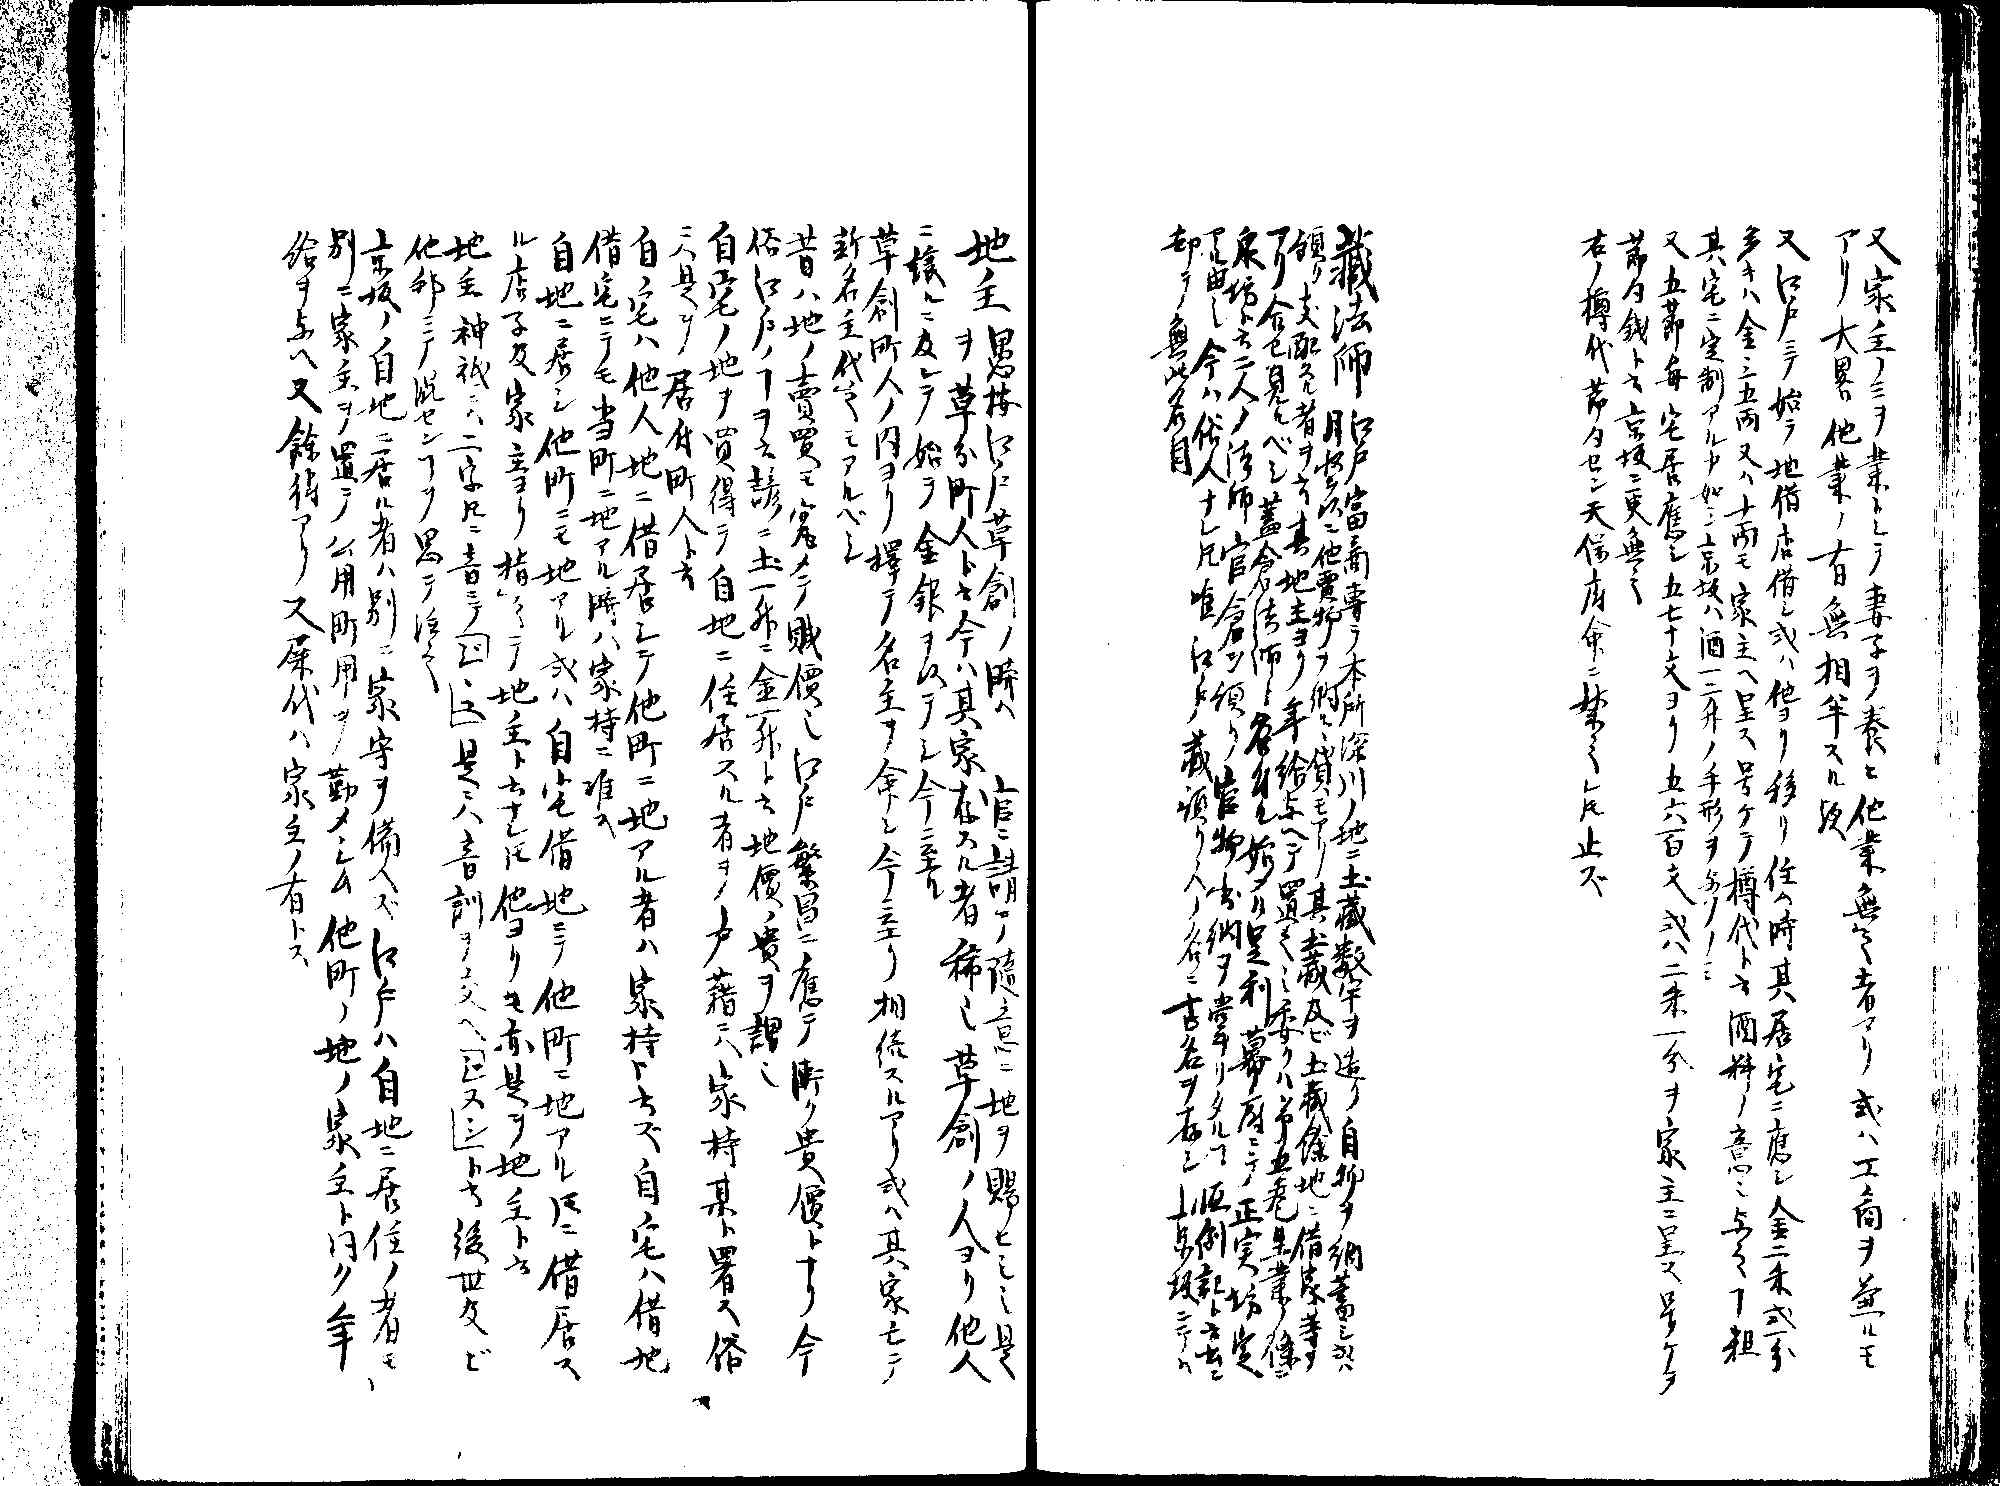 又家主ノミヲ業トシテ妻子ヲ養ヒ他業無之者アリ或ハ工商ヲ兼ルモ
アリ大畧他業ノ有無相半スル歟
又江戸ニテ始テ地借店借シ或ハ他ヨリ移リ住ム時其居宅ニ応シ金二朱或一分
多キハ金三五両又ハ十両モ家主ヘ呈ス号ケテ樽代ト云酒料ノ意ニ与之
其宅ニ定制アルカ如シ京坂ハ酒一二升ノ手形ヲ
又五節毎宅居應シ五七十文ヨリ五六百文或ハ二朱一分ヲ家主ニ呈ス号ケテ
節句銭ト云京坂ニ更無之
右ノ樽代節句セン天保府命ニ禁之レ𪜈止ズ
蔵法師 江戸富商専ラ本所深川ノ地ニ土蔵数宇ヲ造リ自物ヲ納蓄シ或ハ
月 他賈物ヲ納ニ貸モアリ其土蔵及ビ土蔵餘地ニ借家等ヲ
預リ支配スル者ヲ云其地主ヨリ年給与ヘテ置之ミ委クハ第五巻生業ノ条ニ
アリ合セ見ルベシ蓋倉法師ト名ル始ハ足利幕府ニテ正実坊定
泉坊ト云二人ノ法師官倉ヲ預リ官物出納ヲ掌リタル 云書ニ
アル由シ今ハ俗人ナレ𪜈唯江戸蔵預リ人ノ名ニ古名ヲ存シ京坂ニテハ
却テ無此名目
地主 愚按江戸草創ノ時ハ官ニ請テ隨意ニ地ヲ賜ヒシミ是
ヲ草分町人ト云今ハ其家存スル者稀ミ草創ノ人ヨリ他人
ニ譲ルニ及ンテ始テ金銀ヲ以テシ今ニ至ル
草創町人ノ内ヨリ擇テ名主ヲ命シ今ニ至リ相続スルアリ或ハ其家亡テ
新名主代之モアルベシ
昔ハ地ノ賣買モ寡メニテ賎價ミ江戸繁昌ニ應テ漸ク貴價トナリ今
俗江戸ノヿヲ云諺ニ土一升ニ金一升ト云地價ノ貴ヲ謂ミ
自宅ノ地ヲ買得テ自地ニ住居スル者ヲ戸籍ニハ家持某ト署ス俗
ニハ是ヲ居付町人ト云
自ノ宅ハ他人地ニ借居シテ他町ニ地アル者ハ家持ト云ズ自宅ハ借地
借宅ニテモ当町ニ地アル時ハ家持ニ准ス
自地ニ居シ他町ニモ地アル或ハ自宅借地ニテ他町ニ地アル𪜈ニ借居ス
ル店子及家主ヨリ指之テ地主ト云ナレ𪜈他ヨリモ亦是ヲ地主ト云
地主神祇ニハ二字𪜈ニ音ニテ 是ニハ音訓ヲ交ヘ ト云後世及ビ
他邦ニテ混センヿヲ思テ注之
京坂ノ自地ニ居ル者ハ別ニ家守ヲ備ヘズ江戸ハ自地ニ居住ノ者モ
別ニ家主ヲ置テ公用町用ヲ勤メシム他町ノ地ノ家主ト同ク年
給ヲ与ヘ又餘得アリ又屎代ハ家主ノ有トス